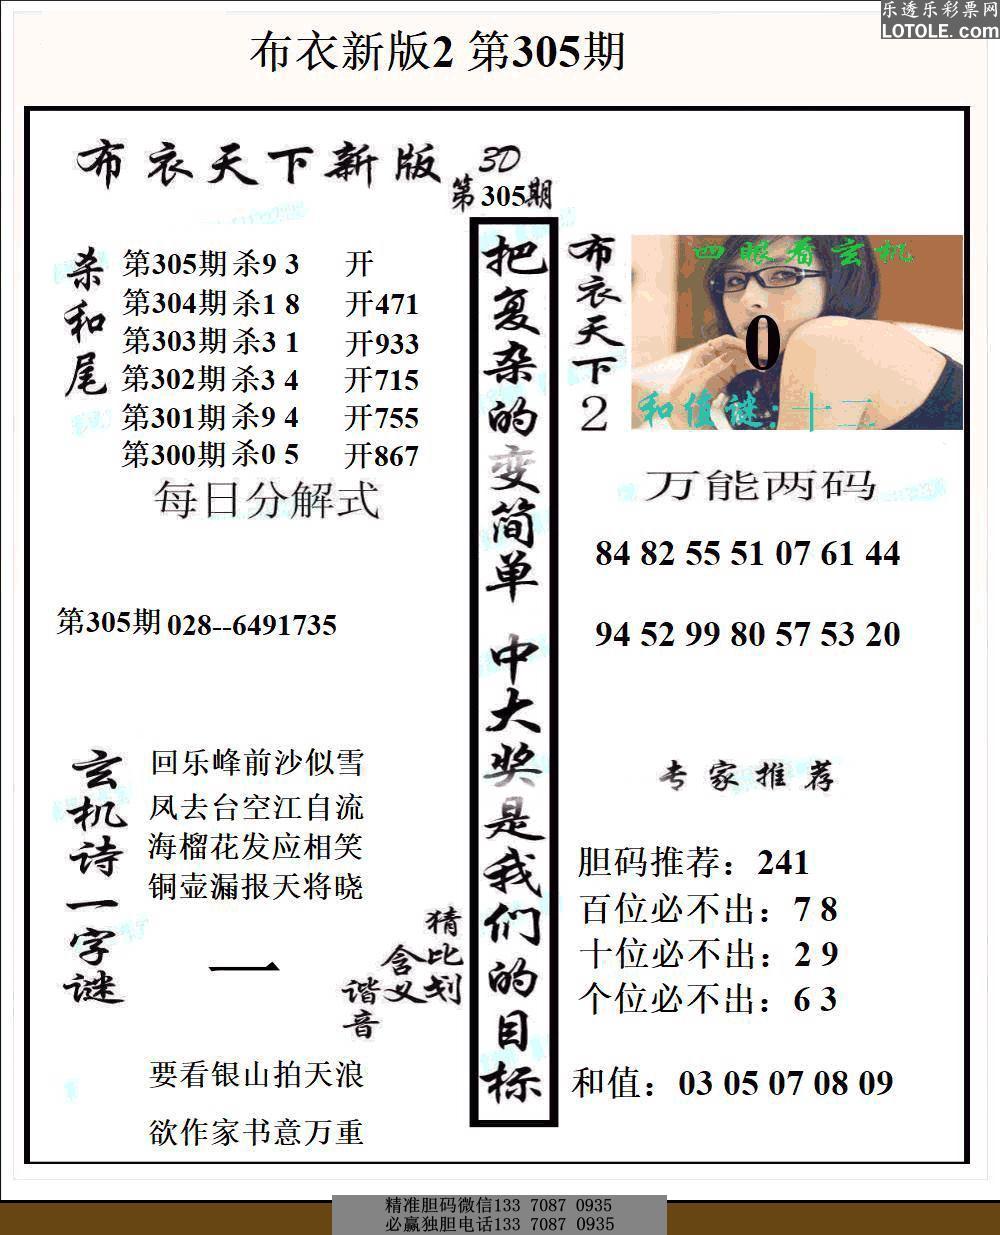 乐透乐彩票网
LOTOLE.com
布衣新版2 第305期
布衣天下新版 3D
第305期
杀和尾
第305期 杀9 3 开
第304期 杀1 8 开471
第303期 杀3 1 开933
第302期 杀3 4 开715
第301期 杀9 4 开755
第300期 杀0 5 开867
每日分解式
第305期 028--6491735
玄机诗一字谜
回乐峰前沙似雪
凤去台空江自流
海榴花发应相笑
铜壶漏报天将晓
一
猜比划
含义
谐音
要看银山拍天浪
欲作家书意万重
把复杂的变简单 中大奖是我们的目标
布衣天下2
四眼看玄机
0
和值谜:十二
万能两码
84 82 55 51 07 61 44
94 52 99 80 57 53 20
专家推荐
胆码推荐：241
百位必不出：7 8
十位必不出：2 9
个位必不出：6 3
和值：03 05 07 08 09
精准胆码微信133 7087 0935
必赢独胆电话133 7087 0935